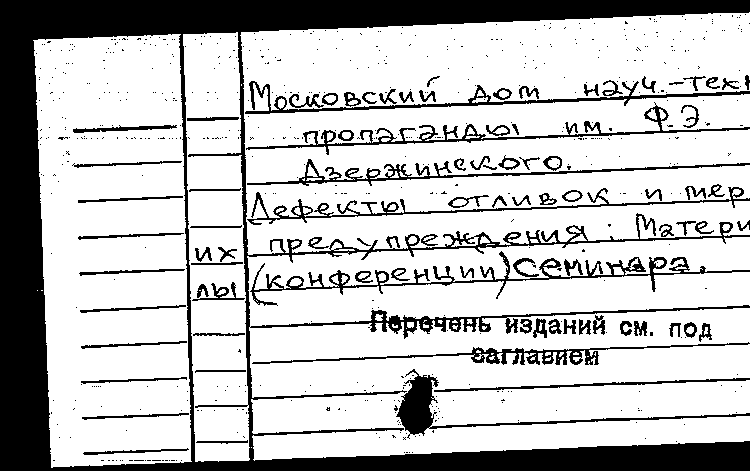 Московский дом науч.-тех
пропаганды им. Ф.Э.
Дзержинского.
Дефекты отливок и мер
их предупреждения: Матери
лы (конференции) семинара.
Перечень изданий см. под
заглавием